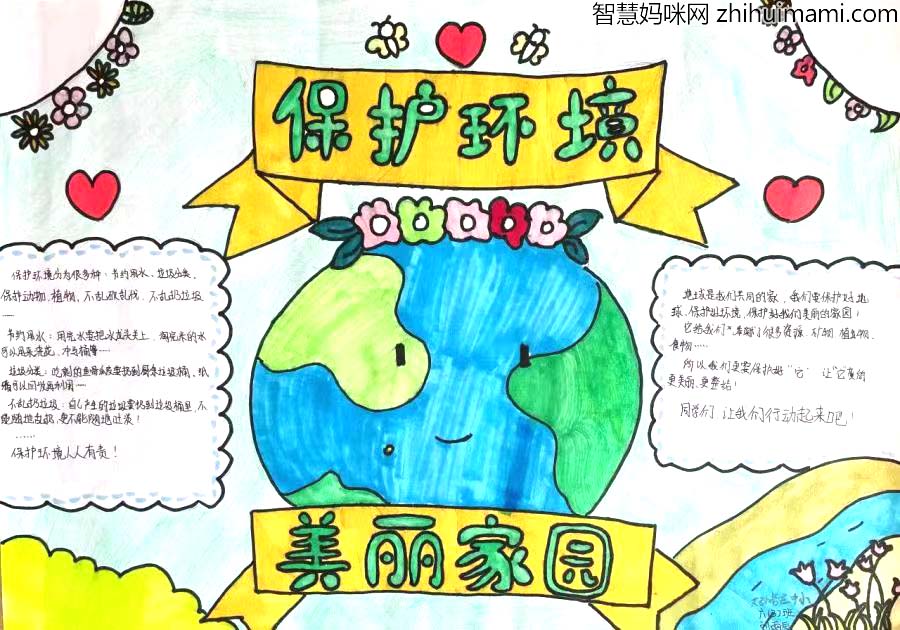 智慧妈咪网 zhihuimami.com
保护环境
保护环境分为很多种：节约用水、垃圾分类、
保护动物、植物、不乱砍乱伐、不乱扔垃圾
……
节约用水：用完水要把水龙头关上，淘完米的水
可以用来浇花，冲马桶等……
垃圾分类：吃剩的
可以回收再利用……
不乱扔垃圾：自己产生的垃圾要扔到垃圾桶里，不
能随地乱扔，更不能随地吐痰！
……
保护环境人人有责！
地球是我们共同的家，我们要保护好地
球、保护好环境，保护好我们美丽的家园！
它给我们
食物……
所以我们更要保护好“它”让“它”变的
更美丽、更整洁！
同学们 让我们行动起来吧！
美丽家园